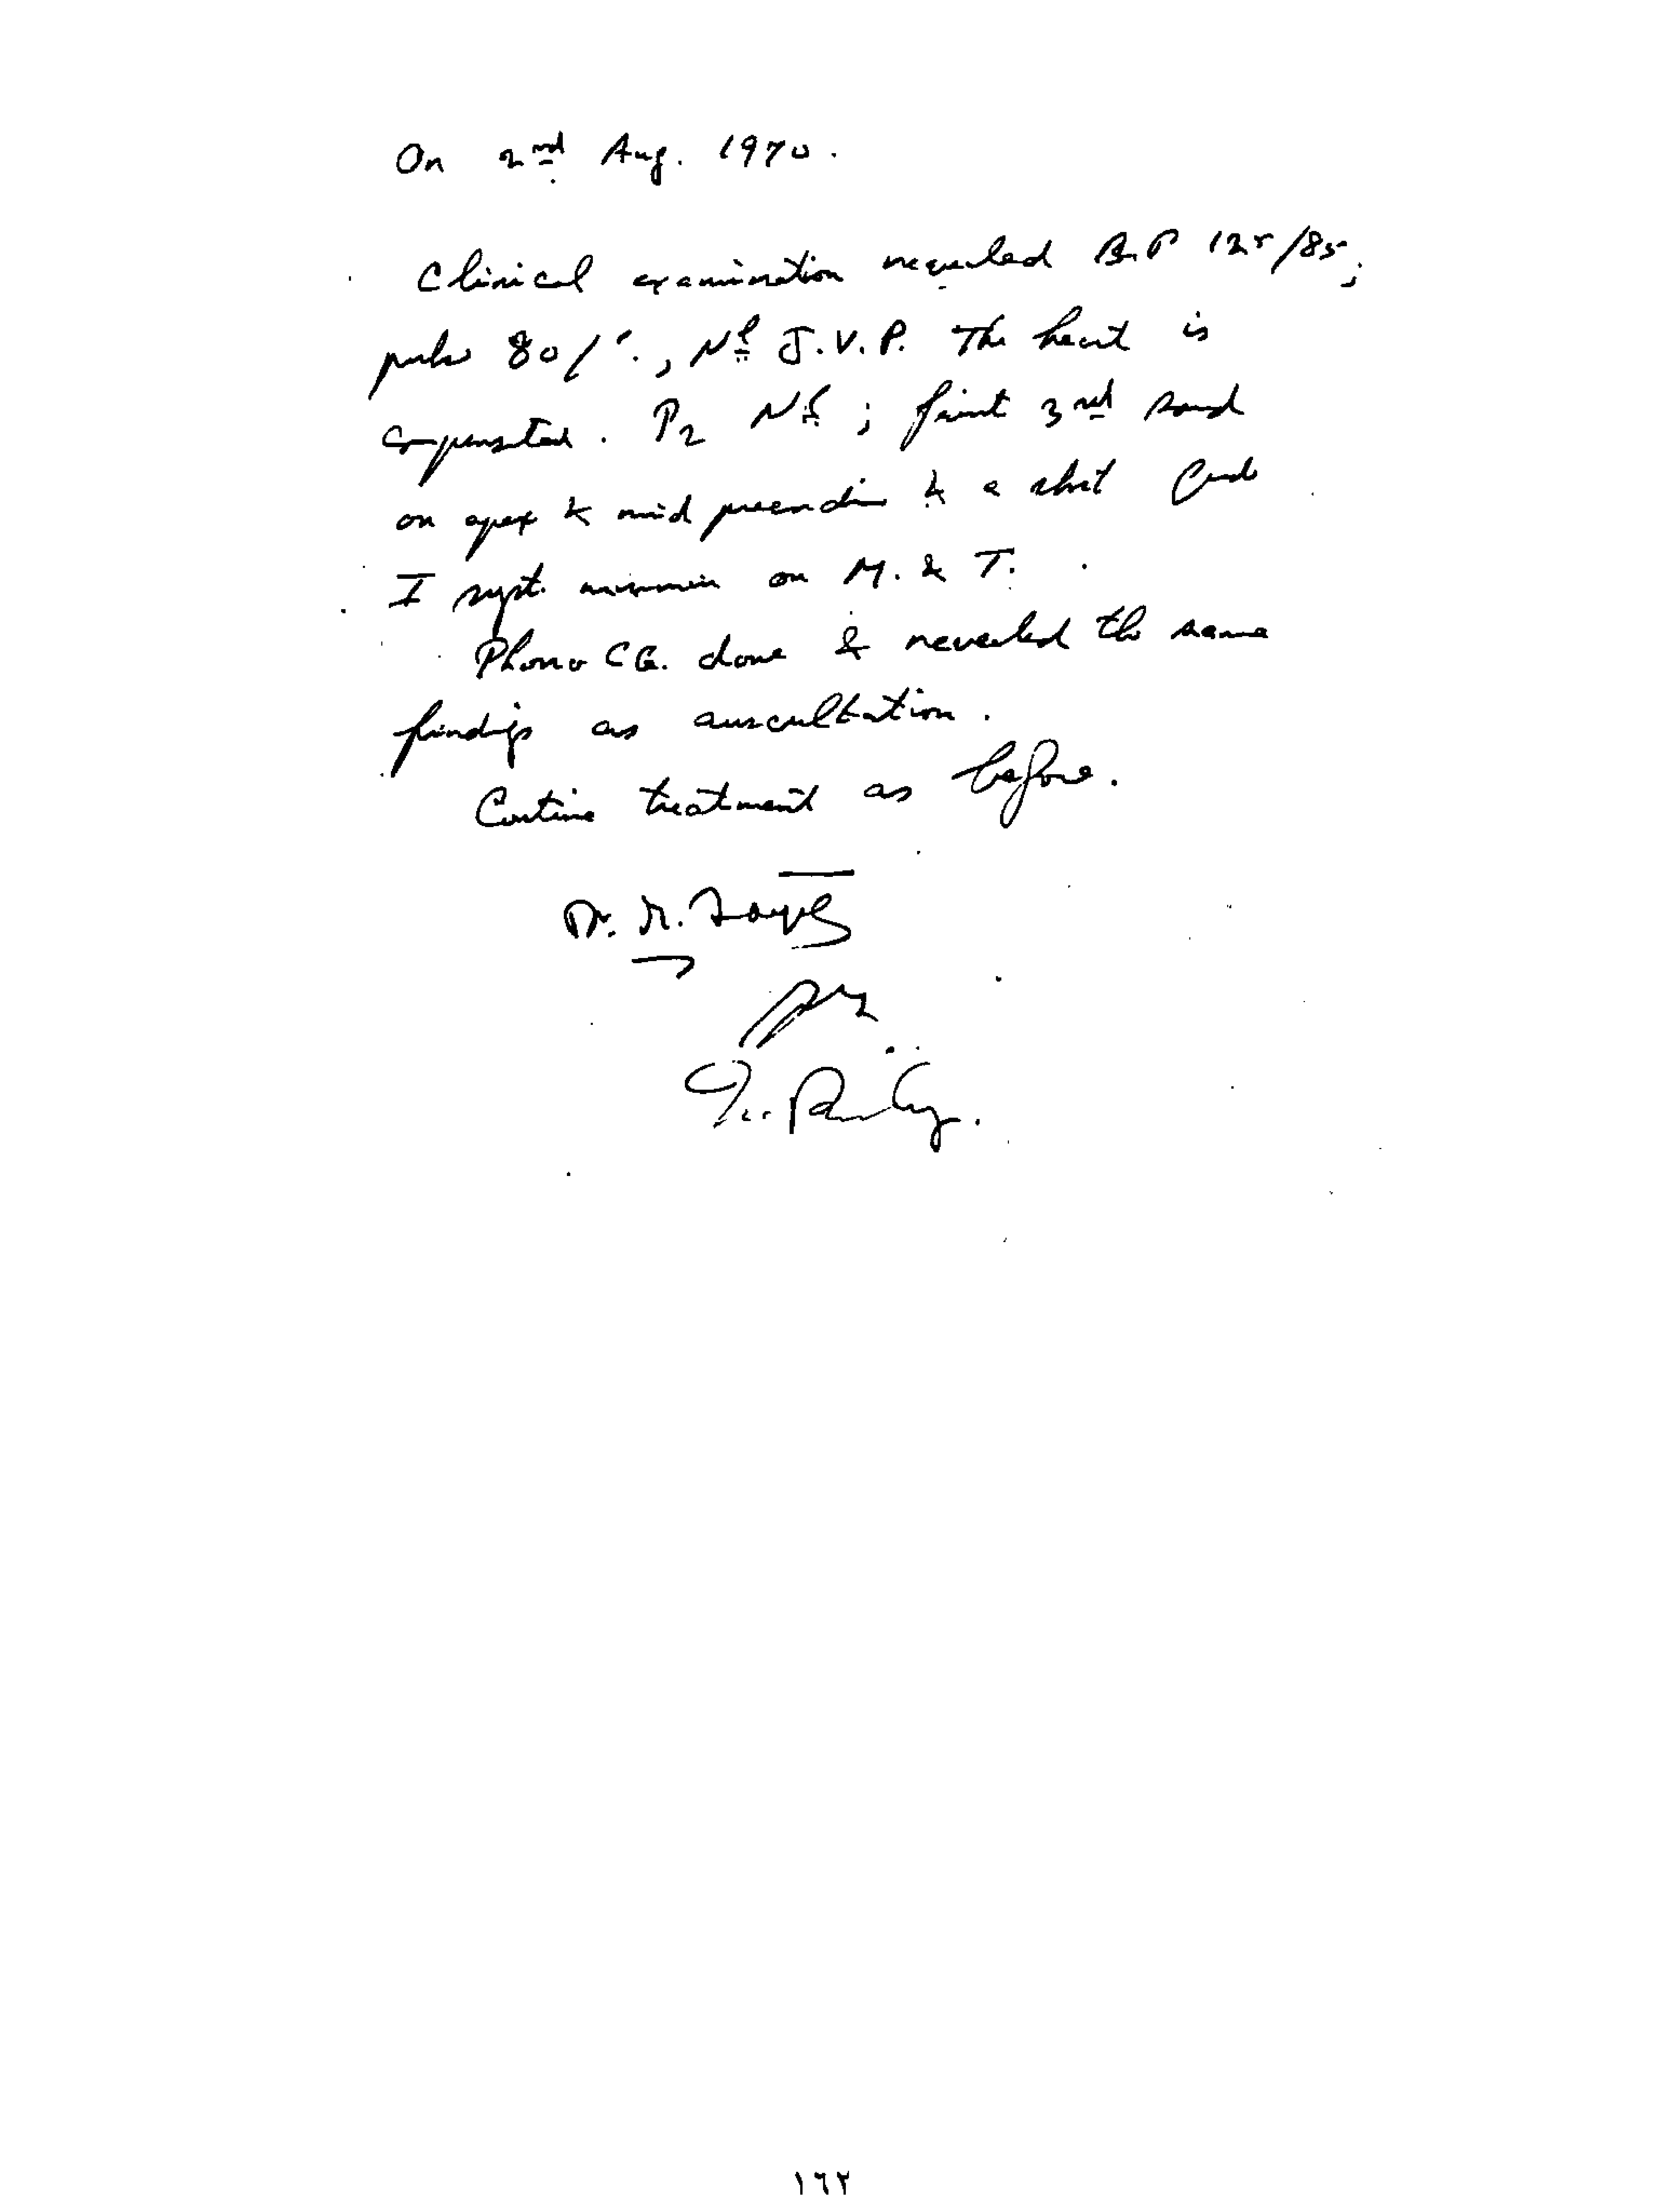 On 2nd Aug. 1970.
Clinical examination revealed B.P 125/85;
pulse 80/'., Nl J.V.P. The heart is
compensated. P2 Nl; faint 3rd sound
on apex & mid precordium & a short Grade
I syst. murmur on M. & T.
Phono CG. done & revealed the same
findings as auscultation.
Continue treatment as before.
Dr.
١٦٢